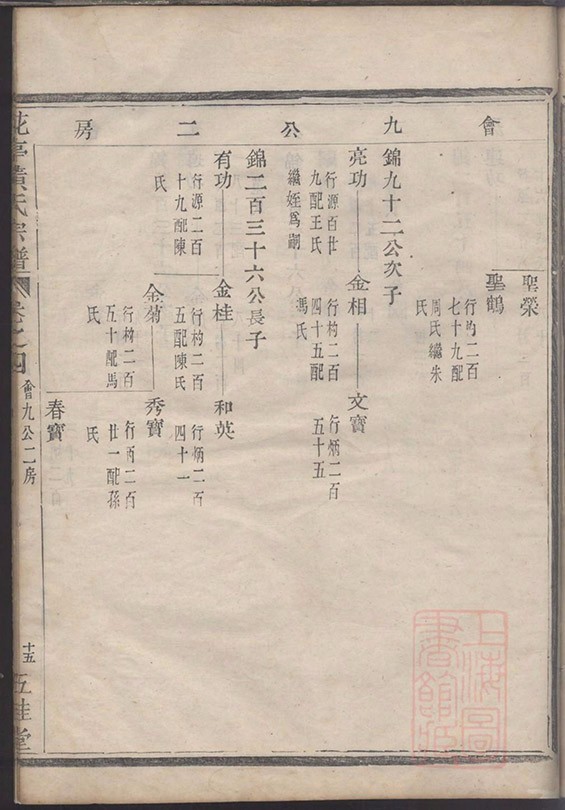 會九公二房
聖榮
聖鶴
行杓二百
七十九配
周氏繼朱
氏
九錦九十二公次子
亮功
行源百廿
九配王氏
繼姪爲嗣
金相
行杓二百
四十五配
馮氏
文寶
行炳二百
五十五
錦二百三十六公長子
有功
行源二百
十九配陳
氏
金桂
行杓二百
五配陳氏
和英
行炳二百
四十一
金菊
行杓二百
五十配馬
氏
秀寶
行丙二百
廿一配孫
氏
春寶
花亭黃氏宗譜
卷之四
會九公二房
十五
五桂堂
上海圖
書館藏